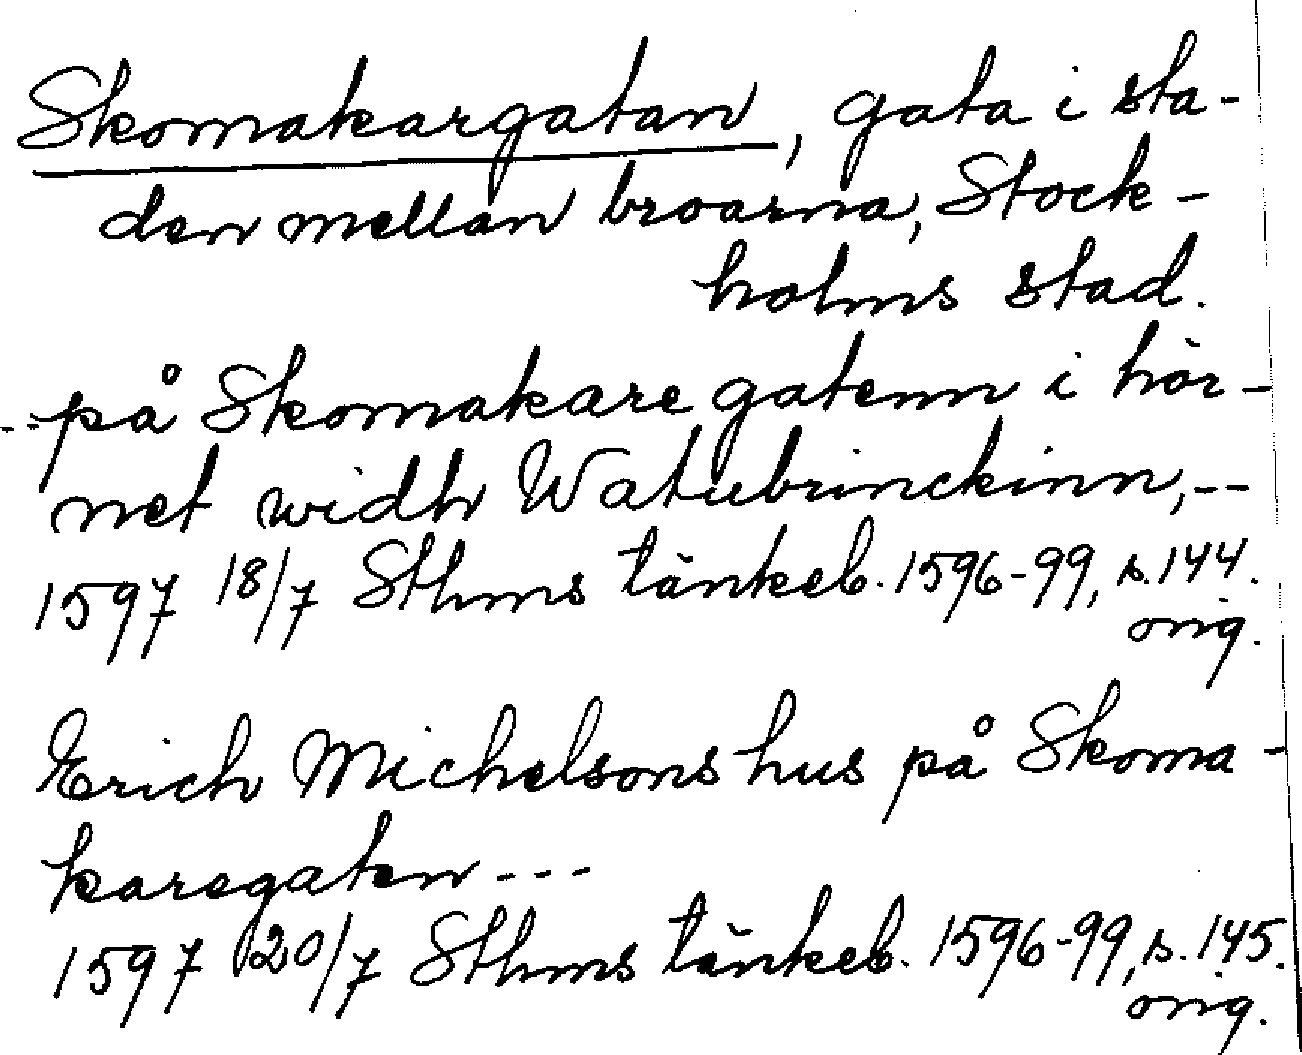 Skomakargatan, gata i sta-
den mellan broarna, Stock-
holms stad.
-- på Skomakare gatenn i hör-
net widh Watubrinckinn, --
1597 18/7 Sthms tänkeb. 1596-99, s. 144.
orig.
Erich Michelsons hus på Skoma-
karegaten ---
1597 20/7 Sthms tänkeb. 1596-99, s. 145.
orig.